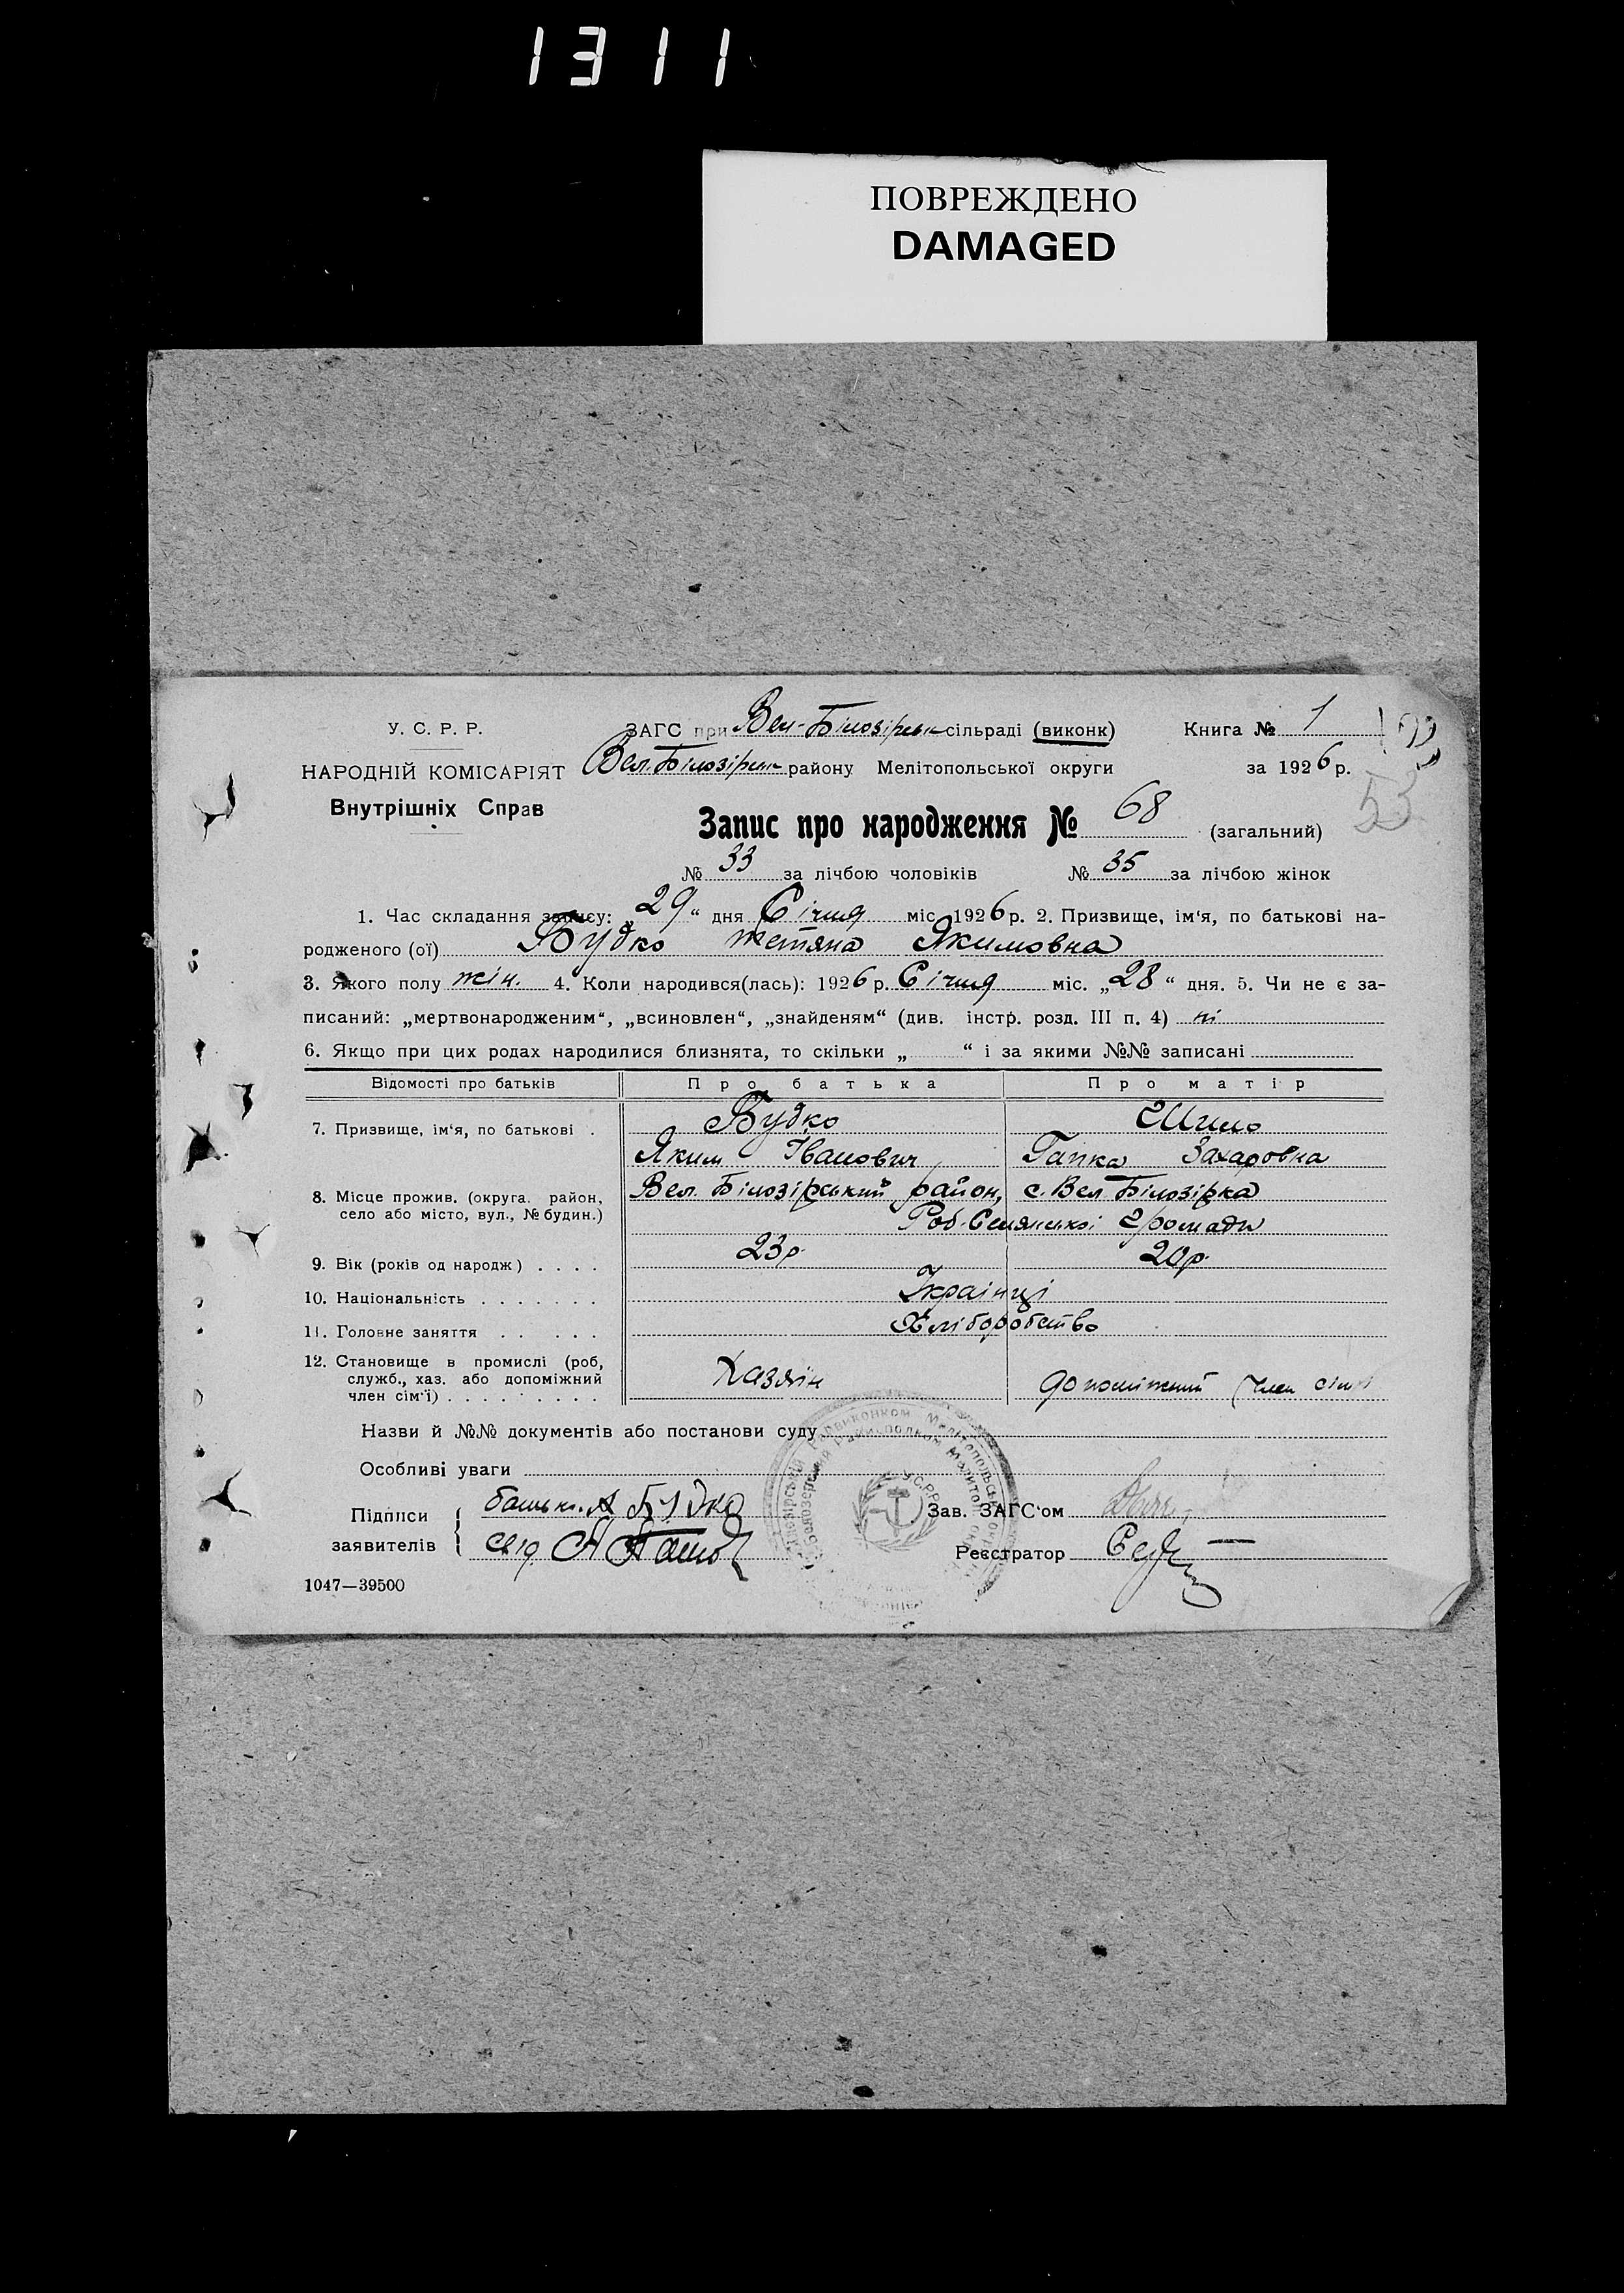 1311
ПОВРЕЖДЕНО
DAMAGED
У. С. Р. Р.
НАРОДНІЙ КОМІСАРІЯТ
Внутрішніх Справ
ЗАГС при Вел-Білозірськ сільраді (виконк) Книга № 1
Вел. Білозірськ району Мелітопольської округи за 1926 р.
53
Запис про народження № 68 (загальний)
№ 33 за лічбою чоловіків № 35 за лічбою жінок
1. Час складання запису: „29“ дня Січня міс. 1926 р. 2. Призвище, ім‘я, по батькові на-
родженого (ої) Будко Тетяна Якимовна
3. Якого полу жін. 4. Коли народився(лась): 1926 р. Січня міс. „28“ дня. 5. Чи не є за-
писаний: „мертвонародженим“, „всиновлен“, „знайденям“ (див. інстр. розд. III п. 4) ні
6. Якщо при цих родах народилися близнята, то скільки „ “ і за якими №№ записані
Відомості про батьків Про батька Про матір
7. Призвище, ім‘я, по батькові . Будко Шило
Яким Іванович Гапка Захаровна
8. Місце прожив. (округа. район, село або місто, вул., № будин.) Вел. Білозірський район, с. Вел Білозірка
Роб. Селянської Громади
9. Вік (років од народж) . . . . 23 р. 20 р.
10. Національність . . . . . . . Українці
11. Головне заняття . . . . . Хліборобство
12. Становище в промислі (роб,
служб., хаз. або допоміжний
член сім‘ї) . . . . . . . . . Хазяїн допоміжний член сімї
Назви й №№ документів або постанови суду
Особливі уваги
Підписи
заявителів
батько А Будко
свід
Зав. ЗАГС‘ом
Реєстратор
У.С.Р.Р.
1047—39500